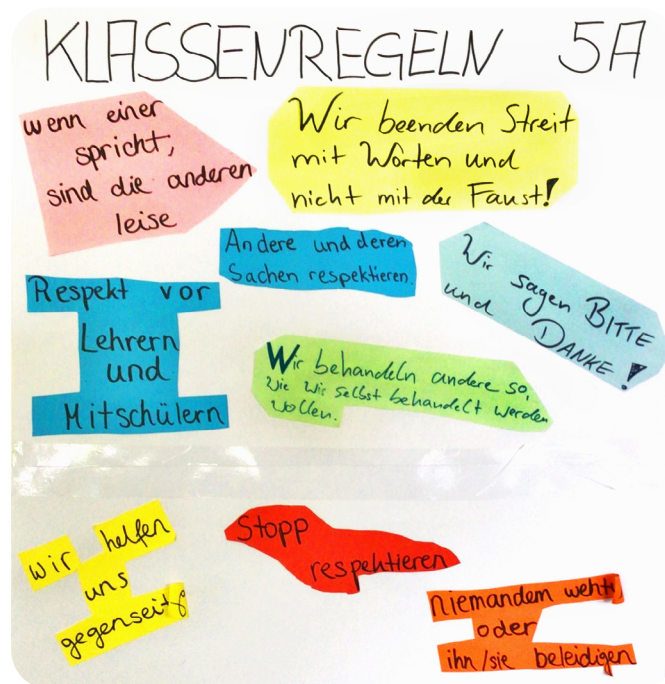 KLASSENREGELN 5A
wenn einer
spricht,
sind die anderen
leise
Wir beenden Streit
mit Worten und
nicht mit der Faust!
Andere und deren
Sachen respektieren.
Wir sagen BITTE
und DANKE!
Respekt vor
Lehrern
und
Mitschülern
Wir behandeln andere so,
wie wir selbst behandelt werden
wollen.
wir helfen
uns
gegenseitig
Stopp
respektieren
niemandem
oder
ihn/sie beleidigen